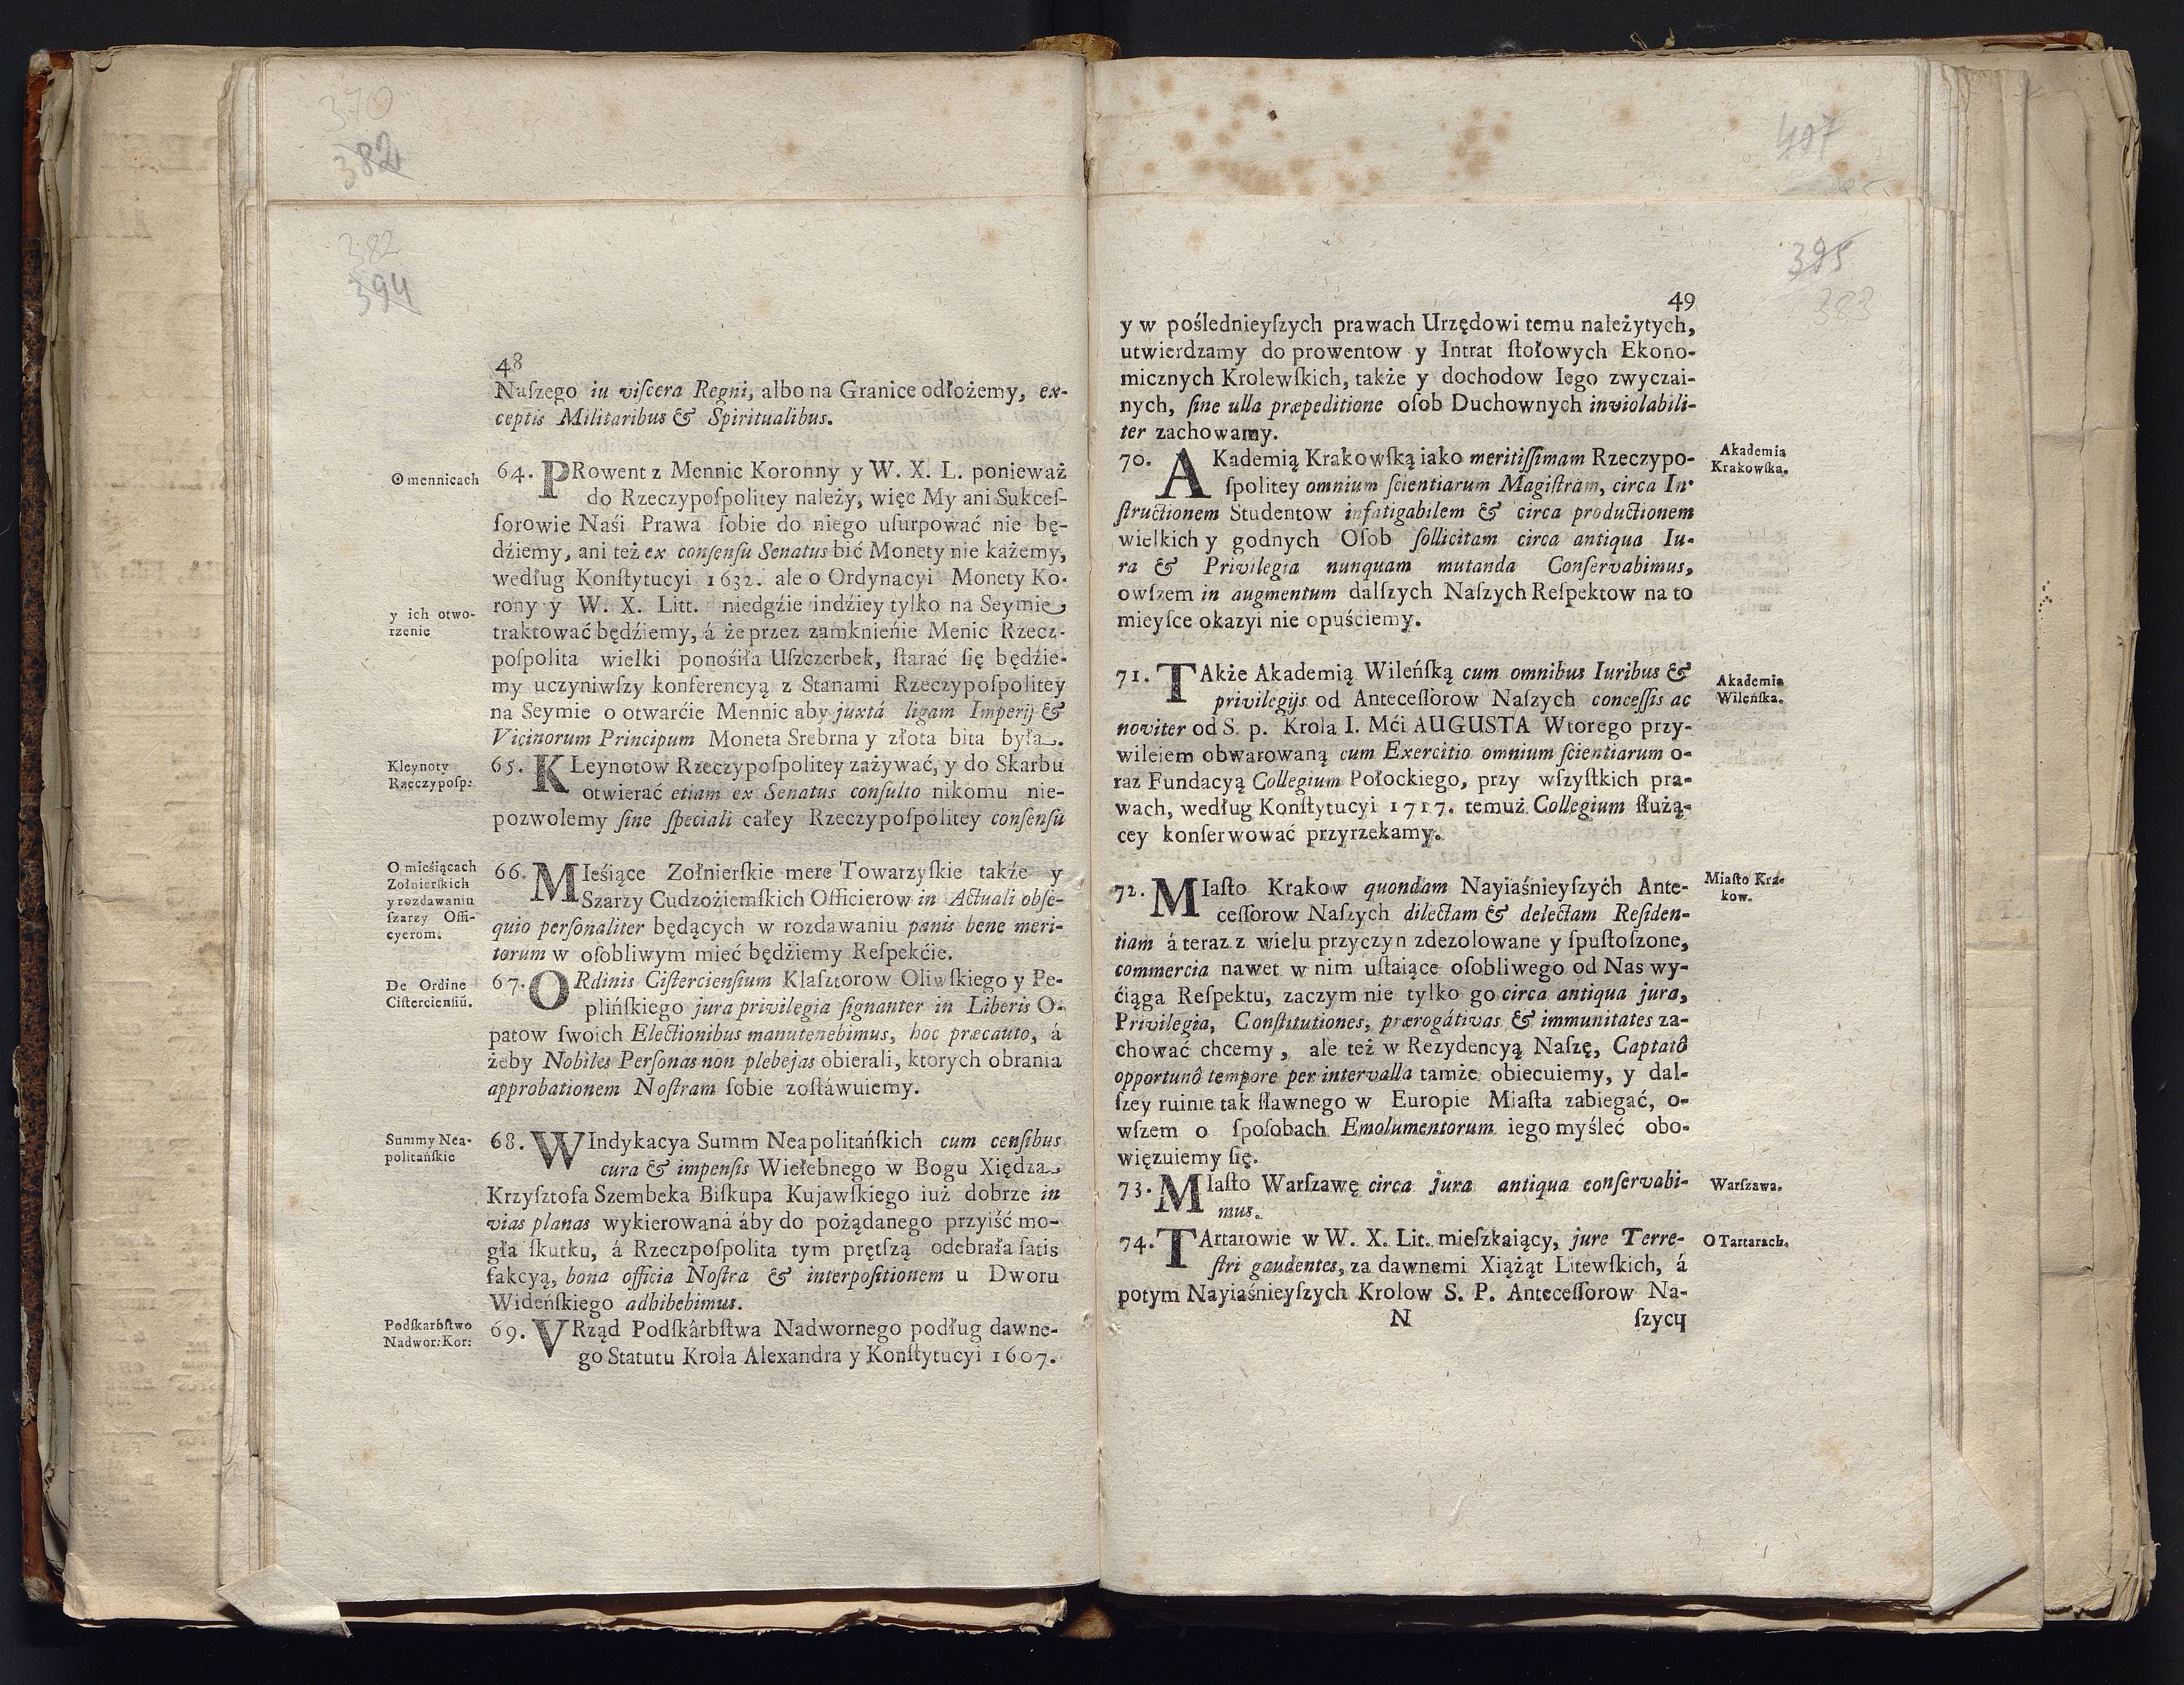 370
382
382
394
48
Naſzego iu viſcera Regni, albo na Granice odłożemy, ex-
ceptis Militaribus & Spiritualibus.
O mennicach
64. PRowent z Mennic Koronny y W. X. L. ponieważ
do Rzeczypoſpolitey należy, więc My ani Sukceſ-
ſorowie Naśi Prawa ſobie do niego uſurpować nie bę-
dźiemy, ani też ex conſenſu Senatus bić Monety nie każemy,
według Konſtytucyi 1632. ale o Ordynacyi Monety Ko-
y ich otwo-
rzenie
rony y W. X. Litt. niedgźie indźiey tylko na Seymie
traktować będźiemy, á że przez zamknieńie Menic Rzecz-
poſpolita wielki ponośiła Uſzczerbek, ſtarać ſię będźie-
my uczyniwſzy konferencyą z Stanami Rzeczypoſpolitey
na Seymie o otwarćie Mennic aby juxtá ligam Imperij &
Vicinorum Principum Moneta Srebrna y złota bita była.
Kleynoty
Rzeczypoſp:
65. KLeynotow Rzeczypoſpolitey zażywać, y do Skarbu
otwierać etiam ex Senatus conſulto nikomu nie-
pozwolemy ſine ſpeciali całey Rzeczypoſpolitey conſenſu
O mieśiącach
Zołnierſkich
y rozdawaniu
ſzarzy Offi-
cyerom.
66. MIeśiące Zołnierſkie mere Towarzyſkie także y
Szarzy Cudzoźiemſkich Officierow in Actuali obſe-
quio perſonaliter będących w rozdawaniu panis bene meri-
torum w oſobliwym mieć będźiemy Reſpekćie.
De Ordine
Ciſtercienſiū.
67. ORdinis Ciſtercienſium Klaſztorow Oliwſkiego y Pe-
plińſkiego jura privilegia ſignanter in Liberis O-
patow ſwoich Electionibus manutenebimus, hoc præcauto, á
żeby Nobiles Perſonas non plebejas obierali, ktorych obrania
approbationem Noſtram ſobie zoſtáwuiemy.
Summy Nea-
politańſkie
68. WIndykacya Summ Neapolitańſkich cum cenſibus
cura & impenſis Wielebnego w Bogu Xiędza
Krzyſztofa Szembeka Biſkupa Kujawſkiego iuż dobrze in
vias planas wykierowaná áby do pożądanego przyiść mo-
gła ſkutku, á Rzeczpoſpolita tym prętſzą odebrała ſatis
fakcyą, bona officia Noſtra & interpoſitionem u Dworu
Wideńſkiego adhibebimus.
Podſkarbſtwo
Nadwor: Kor:
69. VRząd Podſkârbſtwa Nadwornego podług dawne-
go Statutu Krola Alexandra y Konſtytucyi 1607.
395
383
49
y w poślednieyſzych prawach Urzędowi temu należytych,
utwierdzamy do prowentow y Intrat ſtołowych Ekono-
micznych Krolewſkich, także y dochodow Iego zwyczai-
nych, ſine ulla præpeditione oſob Duchownych inviolabili-
ter zachowamy.
Akademia
Krakowſka.
70. AKademią Krakowſką iako meritiſſimam Rzeczypo-
ſpolitey omnium ſcientiarum Magiſtram, circa In-
ſtructionem Studentow infatigabilem & circa productionem
wielkich y godnych Oſob ſollicitam circa antiqua Iu-
ra & Privilegia nunquam mutanda Conſervabimus,
owſzem in augmentum dalſzych Naſzych Reſpektow na to
mieyſce okazyi nie opuśćiemy.
Akademia
Wileńſka.
71. TAkże Akademią Wileńſką cum omnibus Iuribus &
privilegijs od Anteceſſorow Naſzych conceſſis ac
noviter od S. p. Krola I. Mći AUGUSTA Wtorego przy-
wileiem obwarowaną cum Exercitio omnium ſcientiarum o-
raz Fundacyą Collegium Połockiego, przy wſzyſtkich pra-
wach, według Konſtytucyi 1717. temuż Collegium ſłużą-
cey konſerwować przyrzekamy.
Miaſto Kra-
kow.
72. MIaſto Krakow quondam Nayiaśnieyſzych Ante-
ceſſorow Naſzych dilectam & delectam Reſiden-
tiam á teraz z wielu przyczyn zdezolowane y ſpuſtoſzone,
commercia nawet w nim uſtaiące oſobliwego od Nas wy-
ćiąga Reſpektu, zaczym nie tylko go circa antiqua jura,
Privilegia, Conſtitutiones, prærogátivas & immunitates za-
chować chcemy, ale też w Rezydencyą Naſzę, Captatô
opportunô tempore per intervalla tamże obiecuiemy, y dal-
ſzey ruinie tak ſławnego w Europie Miaſta zabiegać, o-
wſzem o ſpoſobach Emolumentorum iego myśleć obo-
więzuiemy ſię.
Warſzawa.
73. MIaſto Warſzawę circa jura antiqua conſervabi-
mus.
O Tartarach.
74. TArtarowie w W. X. Lit. mieſzkaiący, jure Terre-
ſtri gaudentes, za dawnemi Xiążąt Litewſkich, á
potym Nayiaśnieyſzych Krolow S. P. Anteceſſorow Na-
N ſzych